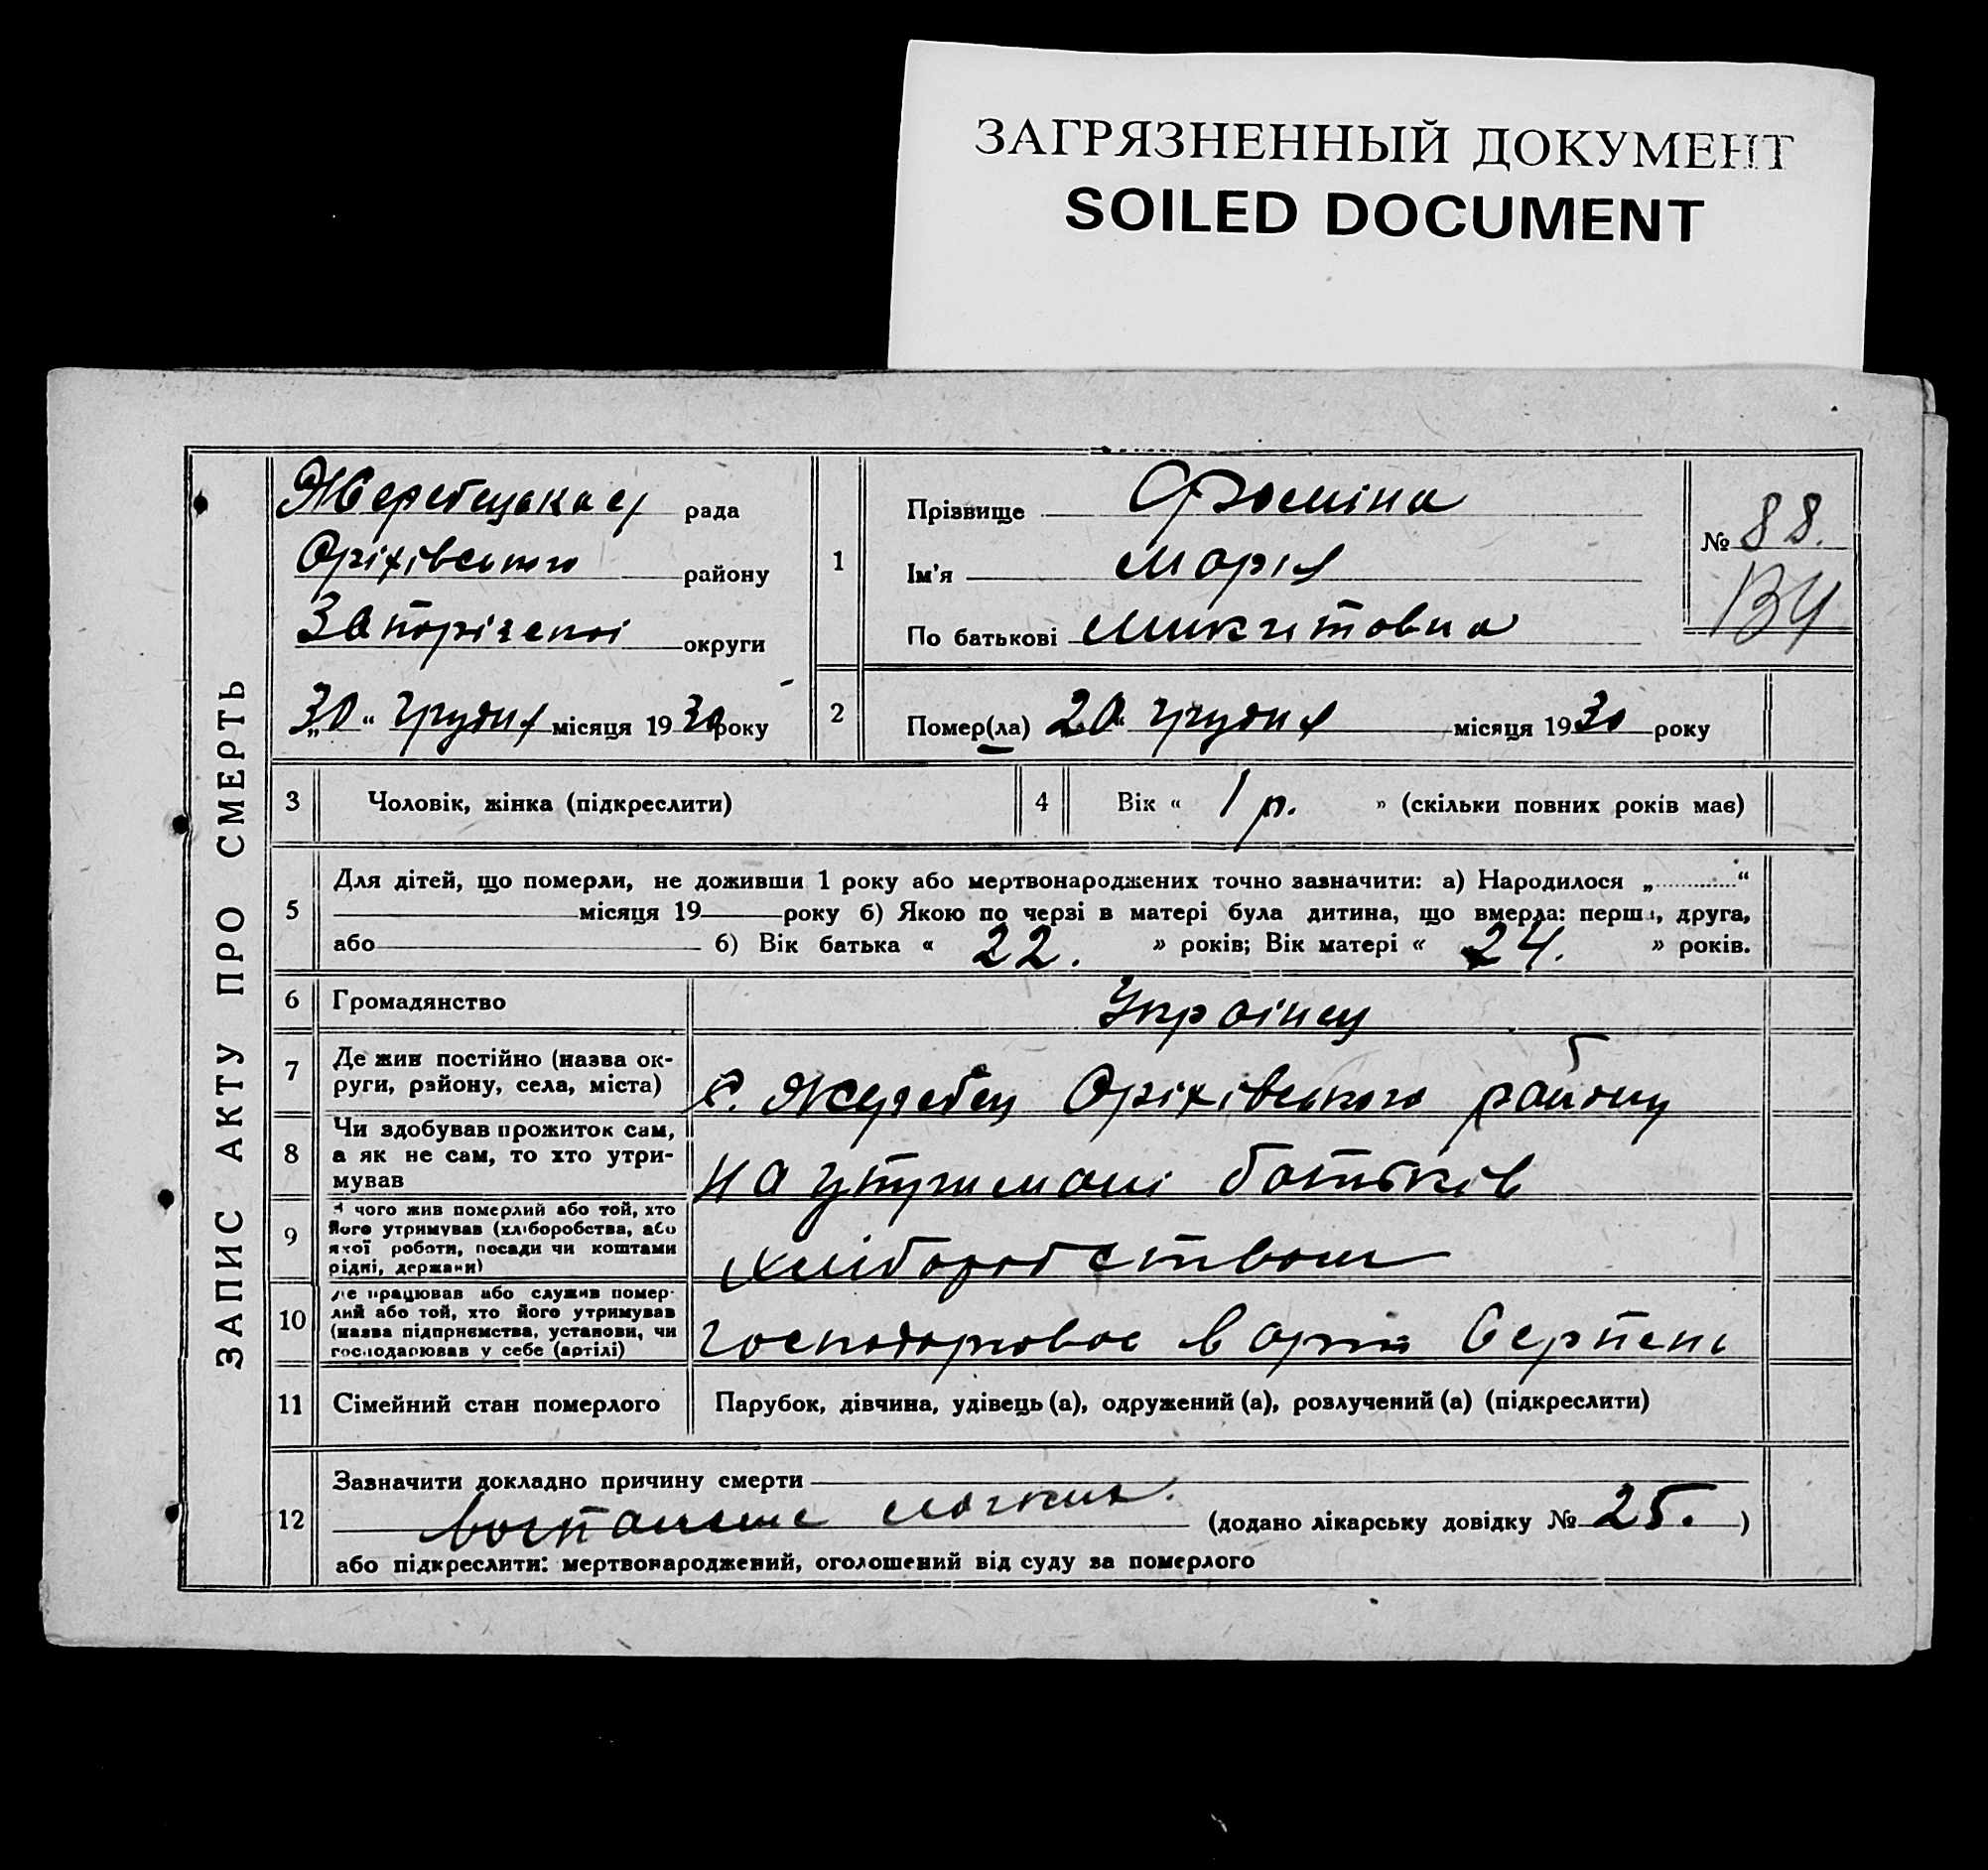 ЗАГРЯЗНЕННЫЙ ДОКУМЕНТ
SOILED DOCUMENT
ЗАПИС АКТУ ПРО СМЕРТЬ
Жеребецька с/ рада
Оріхівського району
Запорізької округи
„30“ грудня місяця 1930 року
1
Прізвище Фоміна
Ім'я Марія
По батькові Микитовна
№ 88.
134
2
Помер(ла) 20 грудня місяця 1930 року
3 Чоловік, жінка (підкреслити)
4 Вік « 1 р. » (скільки повних років має)
5
Для дітей, що померли, не доживши 1 року або мертвонароджених точно зазначити: а) Народилося „ “
місяця 19 року б) Якою по черзі в матері була дитина, що вмерла: перша, друга,
або б) Вік батька « 22. » років; Вік матері « 24. » років.
6 Громадянство Українц
7
Де жив постійно (назва ок-
руги, району, села, міста) с. Жеребец Оріхівського району
8
Чи здобував прожиток сам,
а як не сам, то хто утри-
мував на утримані батьків
9
З чого жив померлий або той, хто
його утримував (хліборобства, або
якої роботи, посади чи коштами
рідні, держави) хліборобством
10
Де працював або служив помер-
лий або той, хто його утримував
(назва підприємства, установи, чи
господарював у себе (артілі) господарював в арт. Серпень
11 Сімейний стан померлого Парубок, дівчина, удівець (а), одружений (а), розлучений (а) (підкреслити)
12
Зазначити докладно причину смерти
воспаление (додано лікарську довідку № 25. )
або підкреслити: мертвонароджений, оголошений від суду за померлого